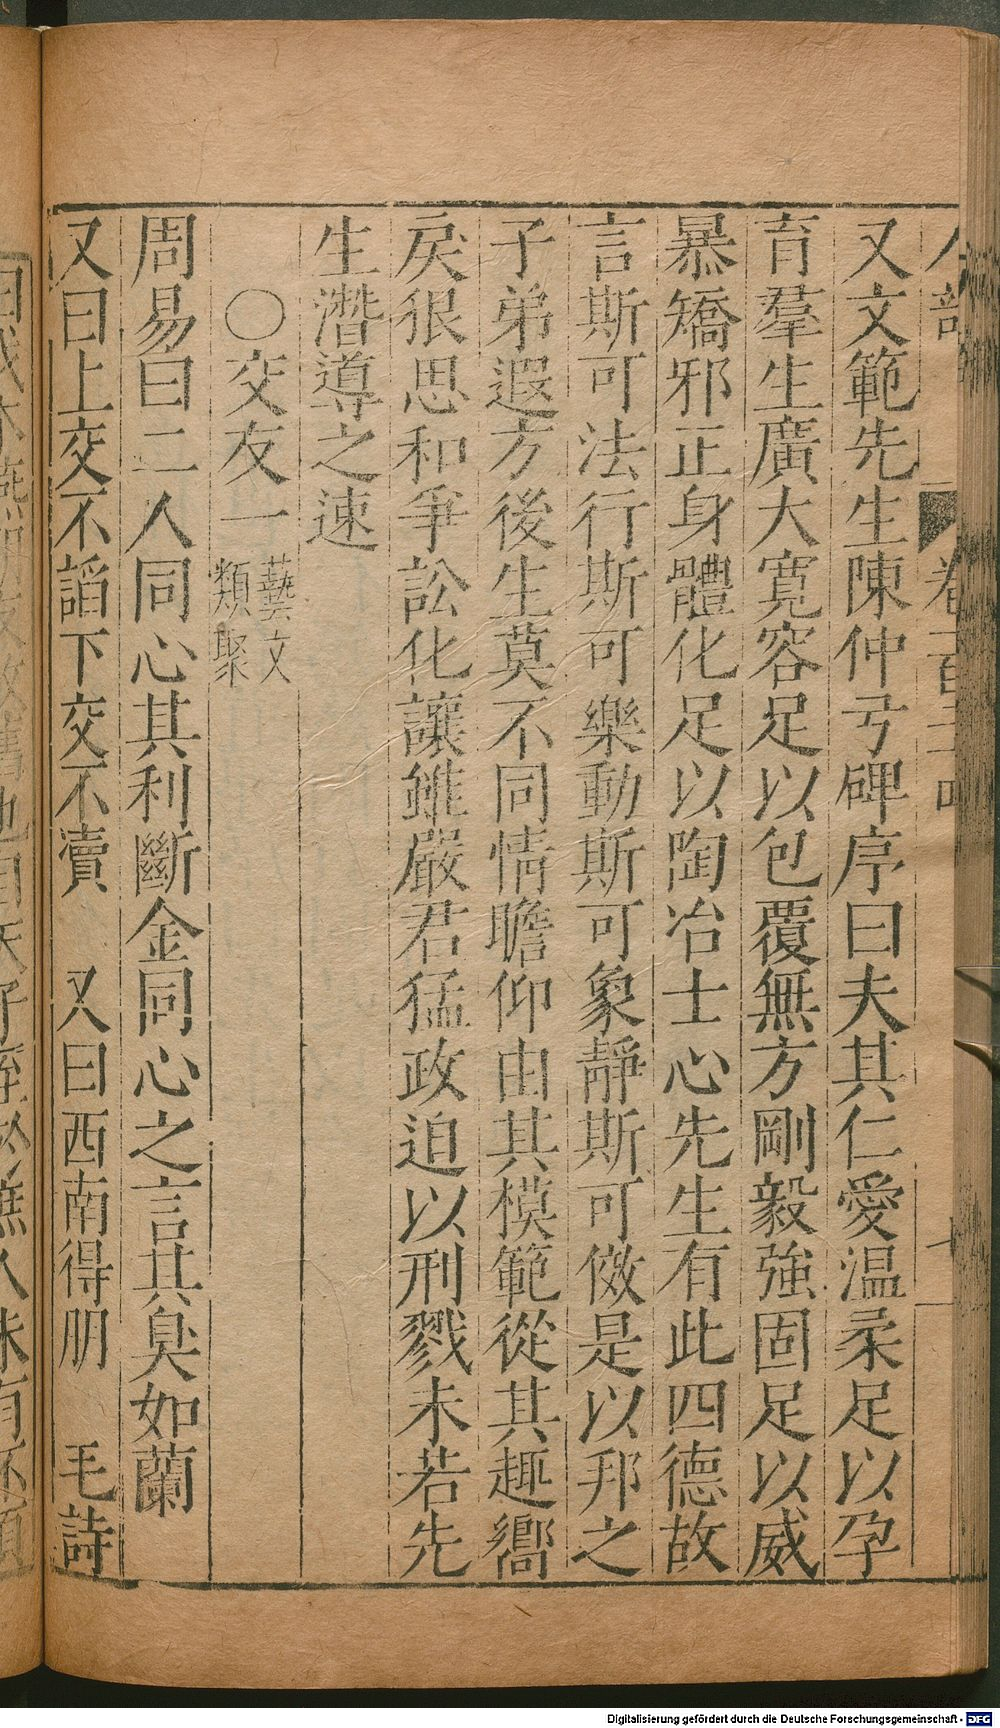 人部 卷一百三
又文範先生陳仲弓碑序曰夫其仁愛温柔足以孕
育羣生廣大寬容足以包覆無方剛毅強固足以威
暴矯邪正身體化足以陶冶士心先生有此四德故
言斯可法行斯可樂動斯可象靜斯可傚是以邦之
子弟遐方後生莫不同情瞻仰由其模範從其趣嚮
戾很思和爭訟化讓雖嚴君猛政迫以刑戮未若先
生潛導之速
〇交友一 藝文類聚
周易曰二人同心其利斷金同心之言其臭如蘭
又曰上交不謟下交不瀆 又曰西南得朋 毛詩
Digitalisierung gefördert durch die Deutsche Forschungsgemeinschaft - DFG